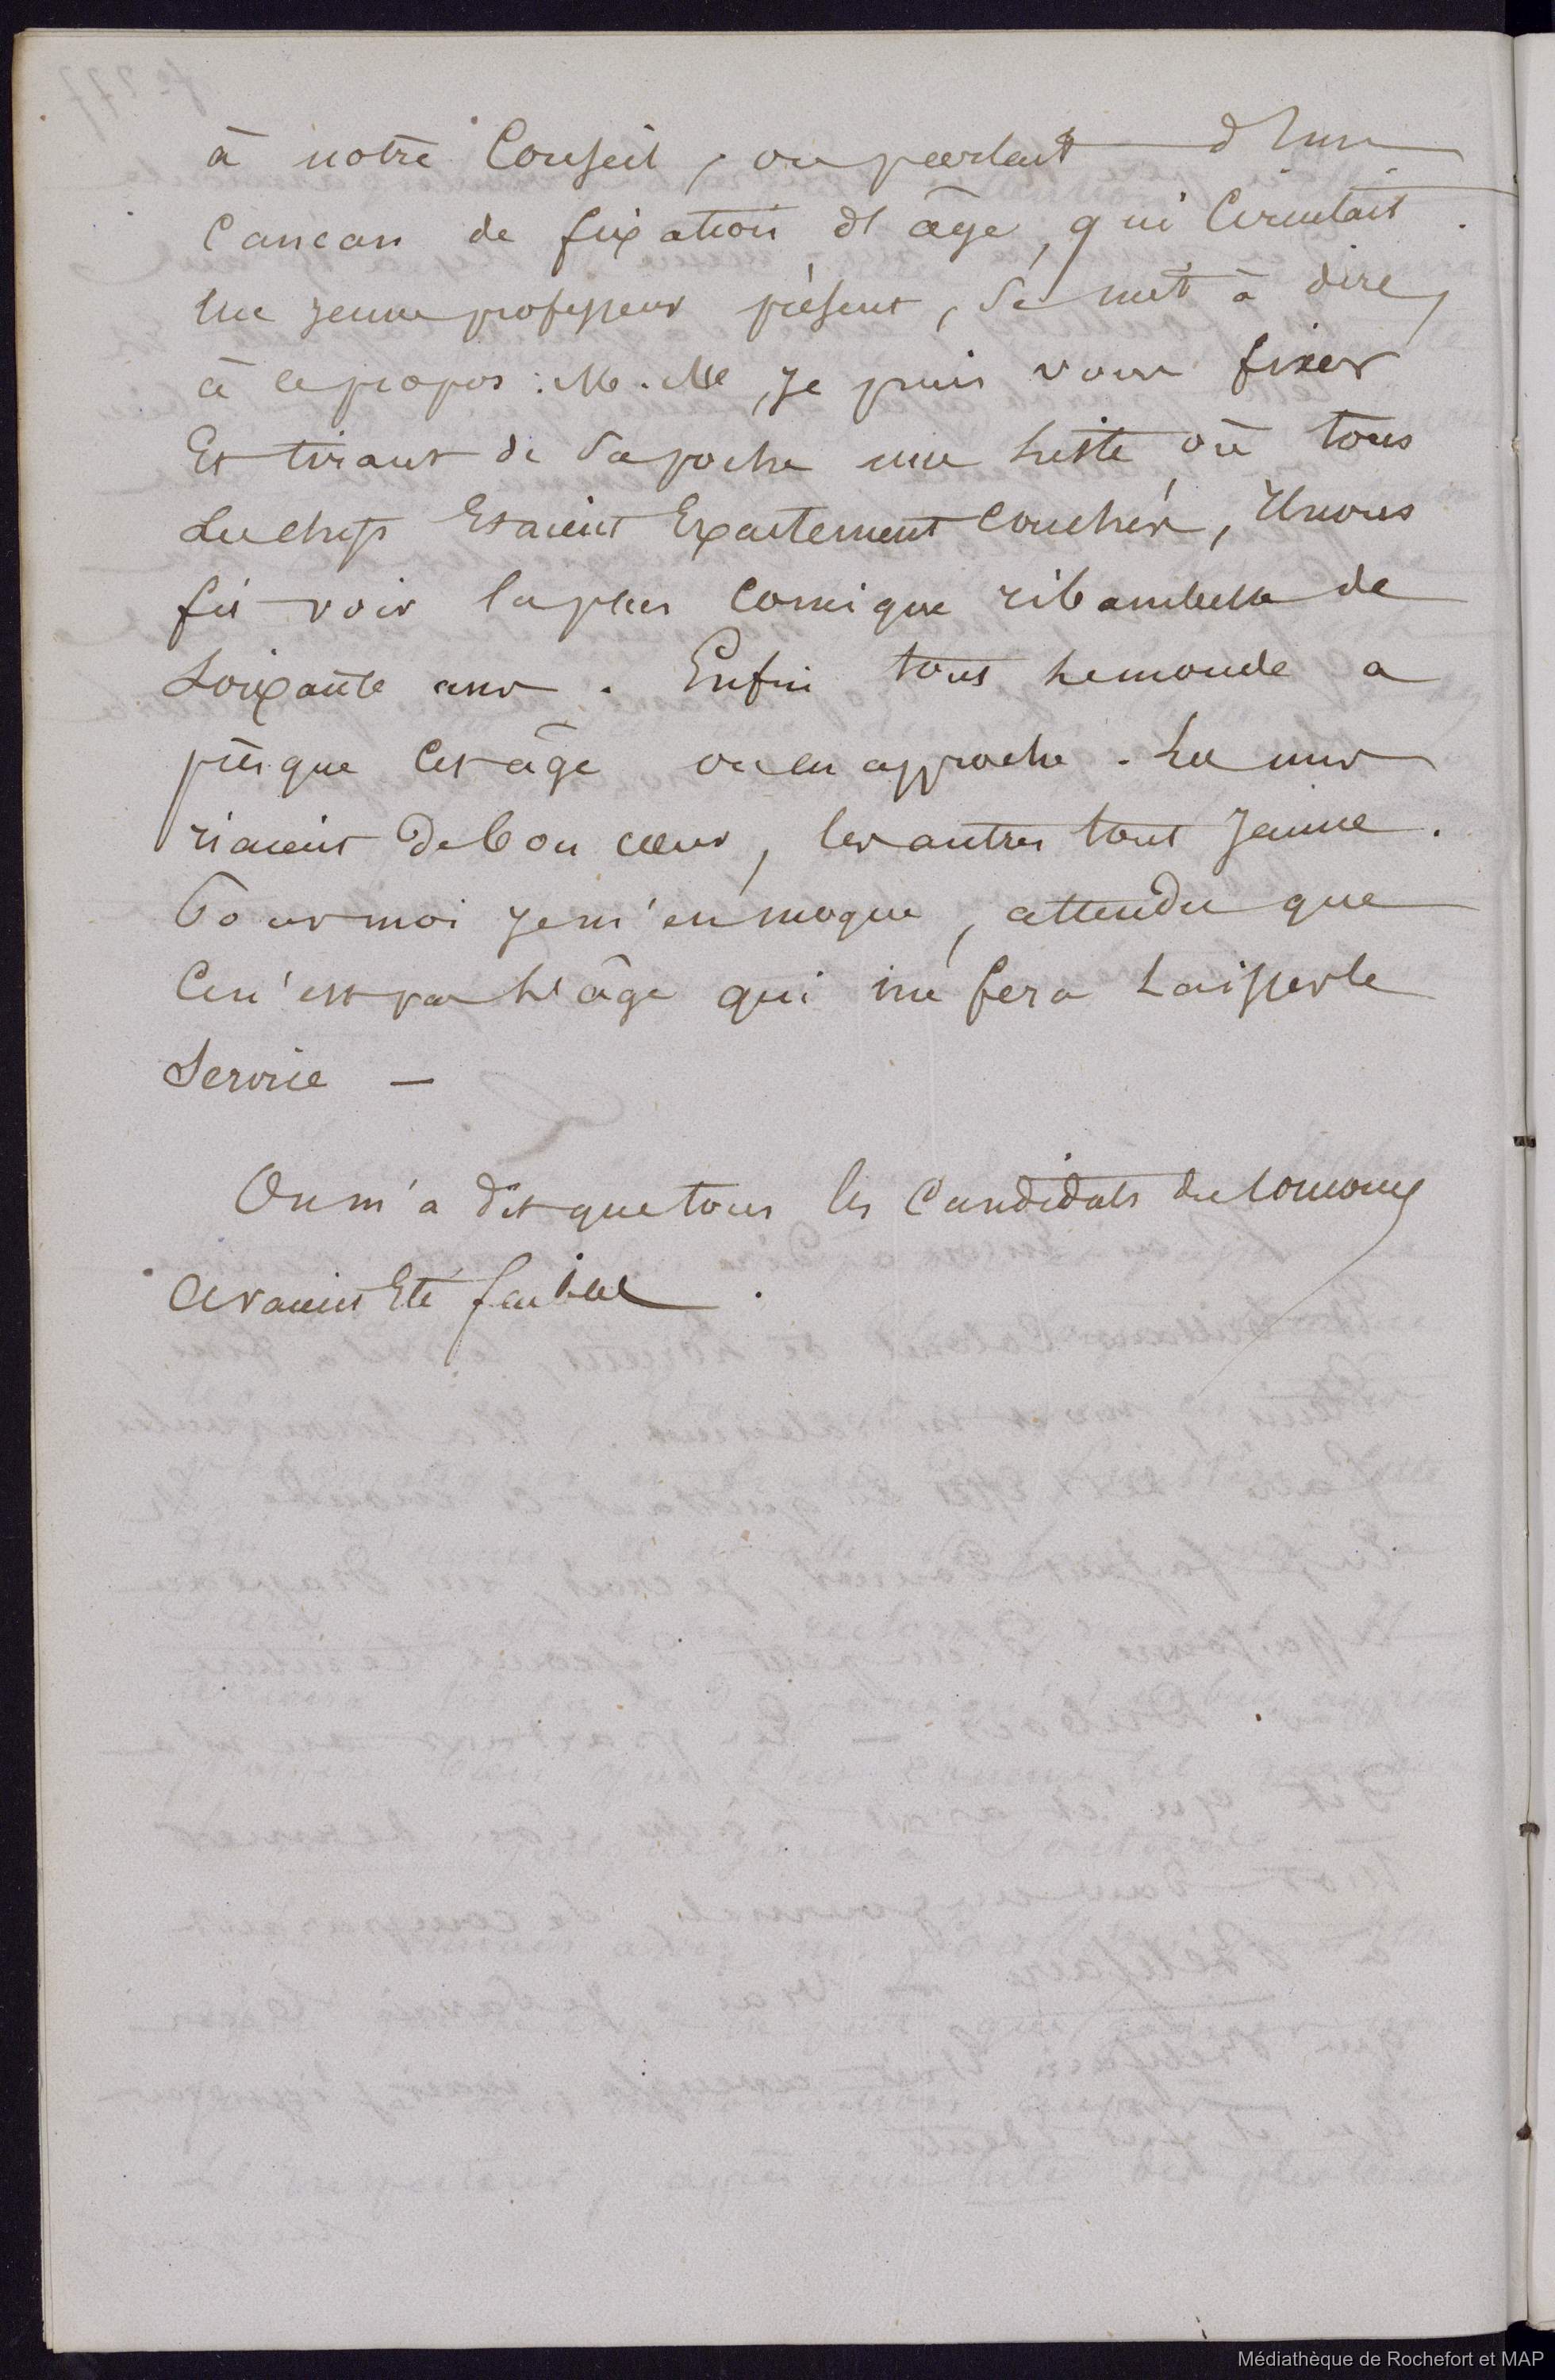 à notre Conseil, on parlait d'un
Cancan de fixation d'âge, qui Circulait.
Un jeune professeur présent, se mit à dire,
à ce propos : M. M, je puis vous fixer
Et tirant de sa poche une Liste où tous
Les chefs Etaient Exactement Couchés, Il nous
fit voir la plus Comique ribambelle de
Soixante ans. Enfin tout le monde a
presque Cet âge ou en approche. Les uns
riaient de bon cœur, les autres tout jaune.
Pour moi je m'en moque, attendu que
Ce n'est pas l'âge qui me fera Laisser le
Service —
On m'a dit que tous les Candidats du Concours
Avaient Eté faibles.
Médiathèque de Rochefort et MAP